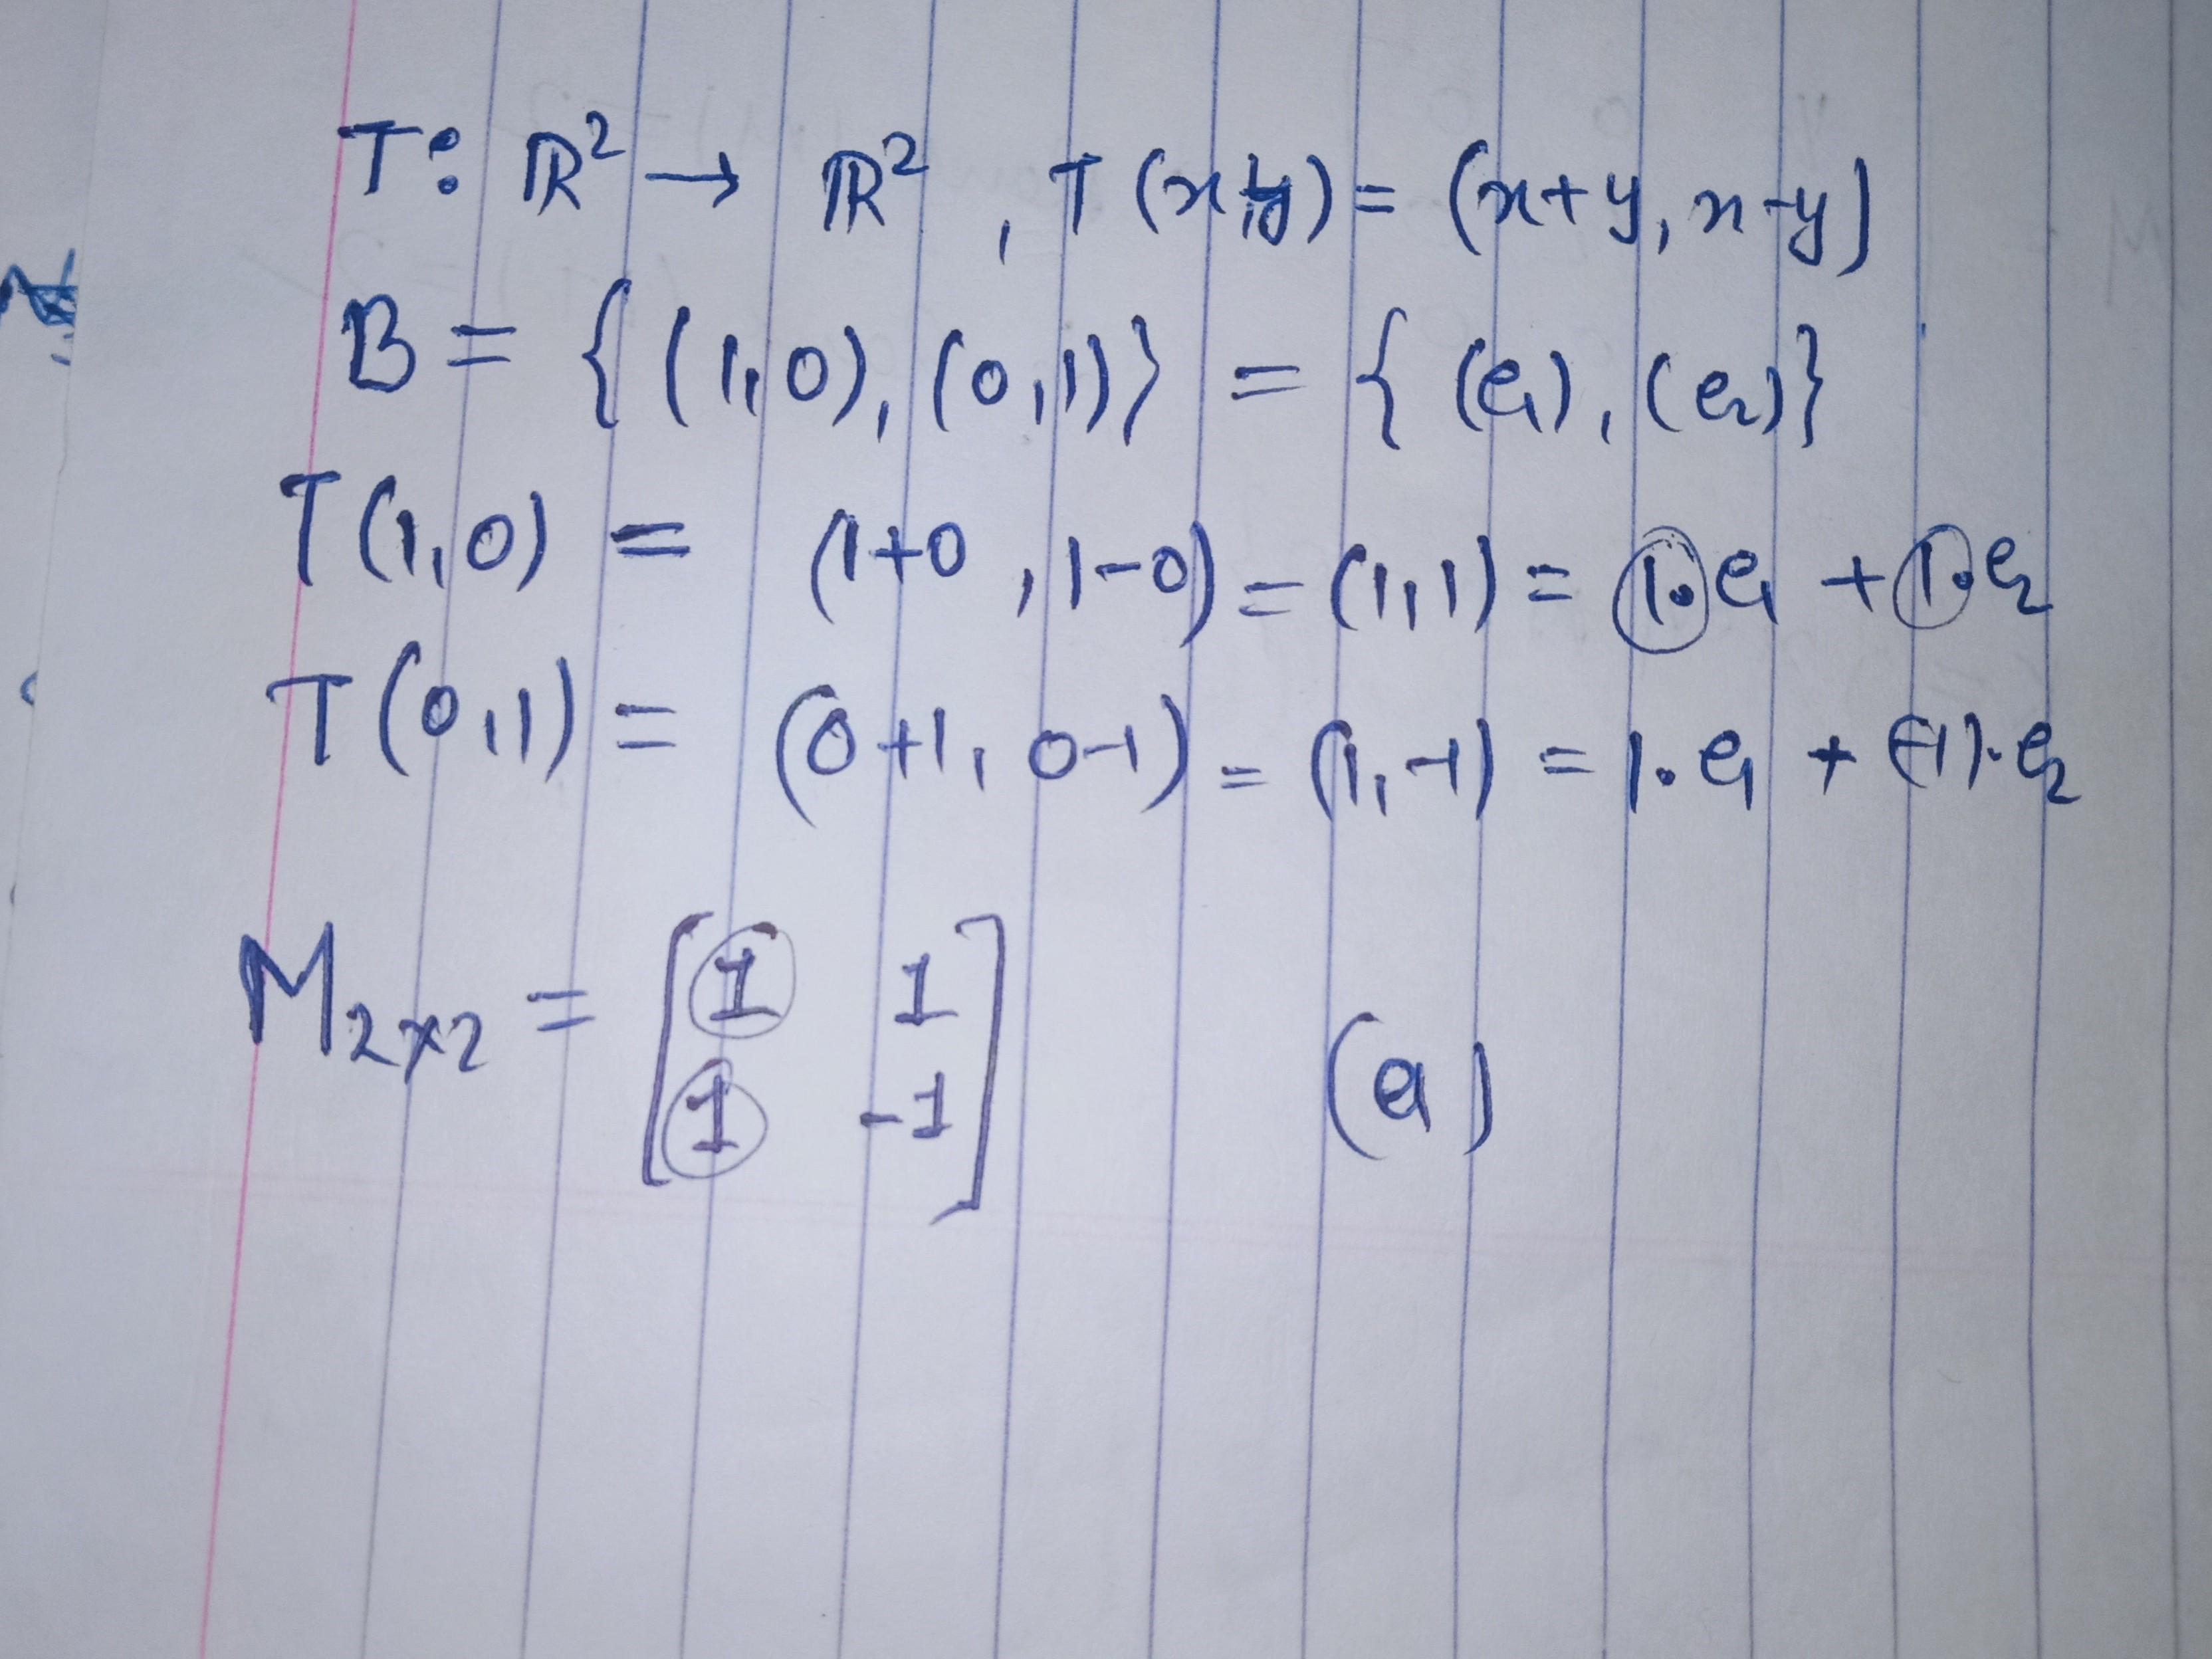 T: ℝ² → ℝ², T(x,y) = (x+y, x-y)
B = {(1,0), (0,1)} = {(e₁), (e₂)}
T(1,0) = (1+0, 1-0) = (1,1) = 1·e₁ + 1·e₂
T(0,1) = (0+1, 0-1) = (1,-1) = 1·e₁ + (-1)·e₂
M₂ₓ₂ = [1 1
1 -1] (a)